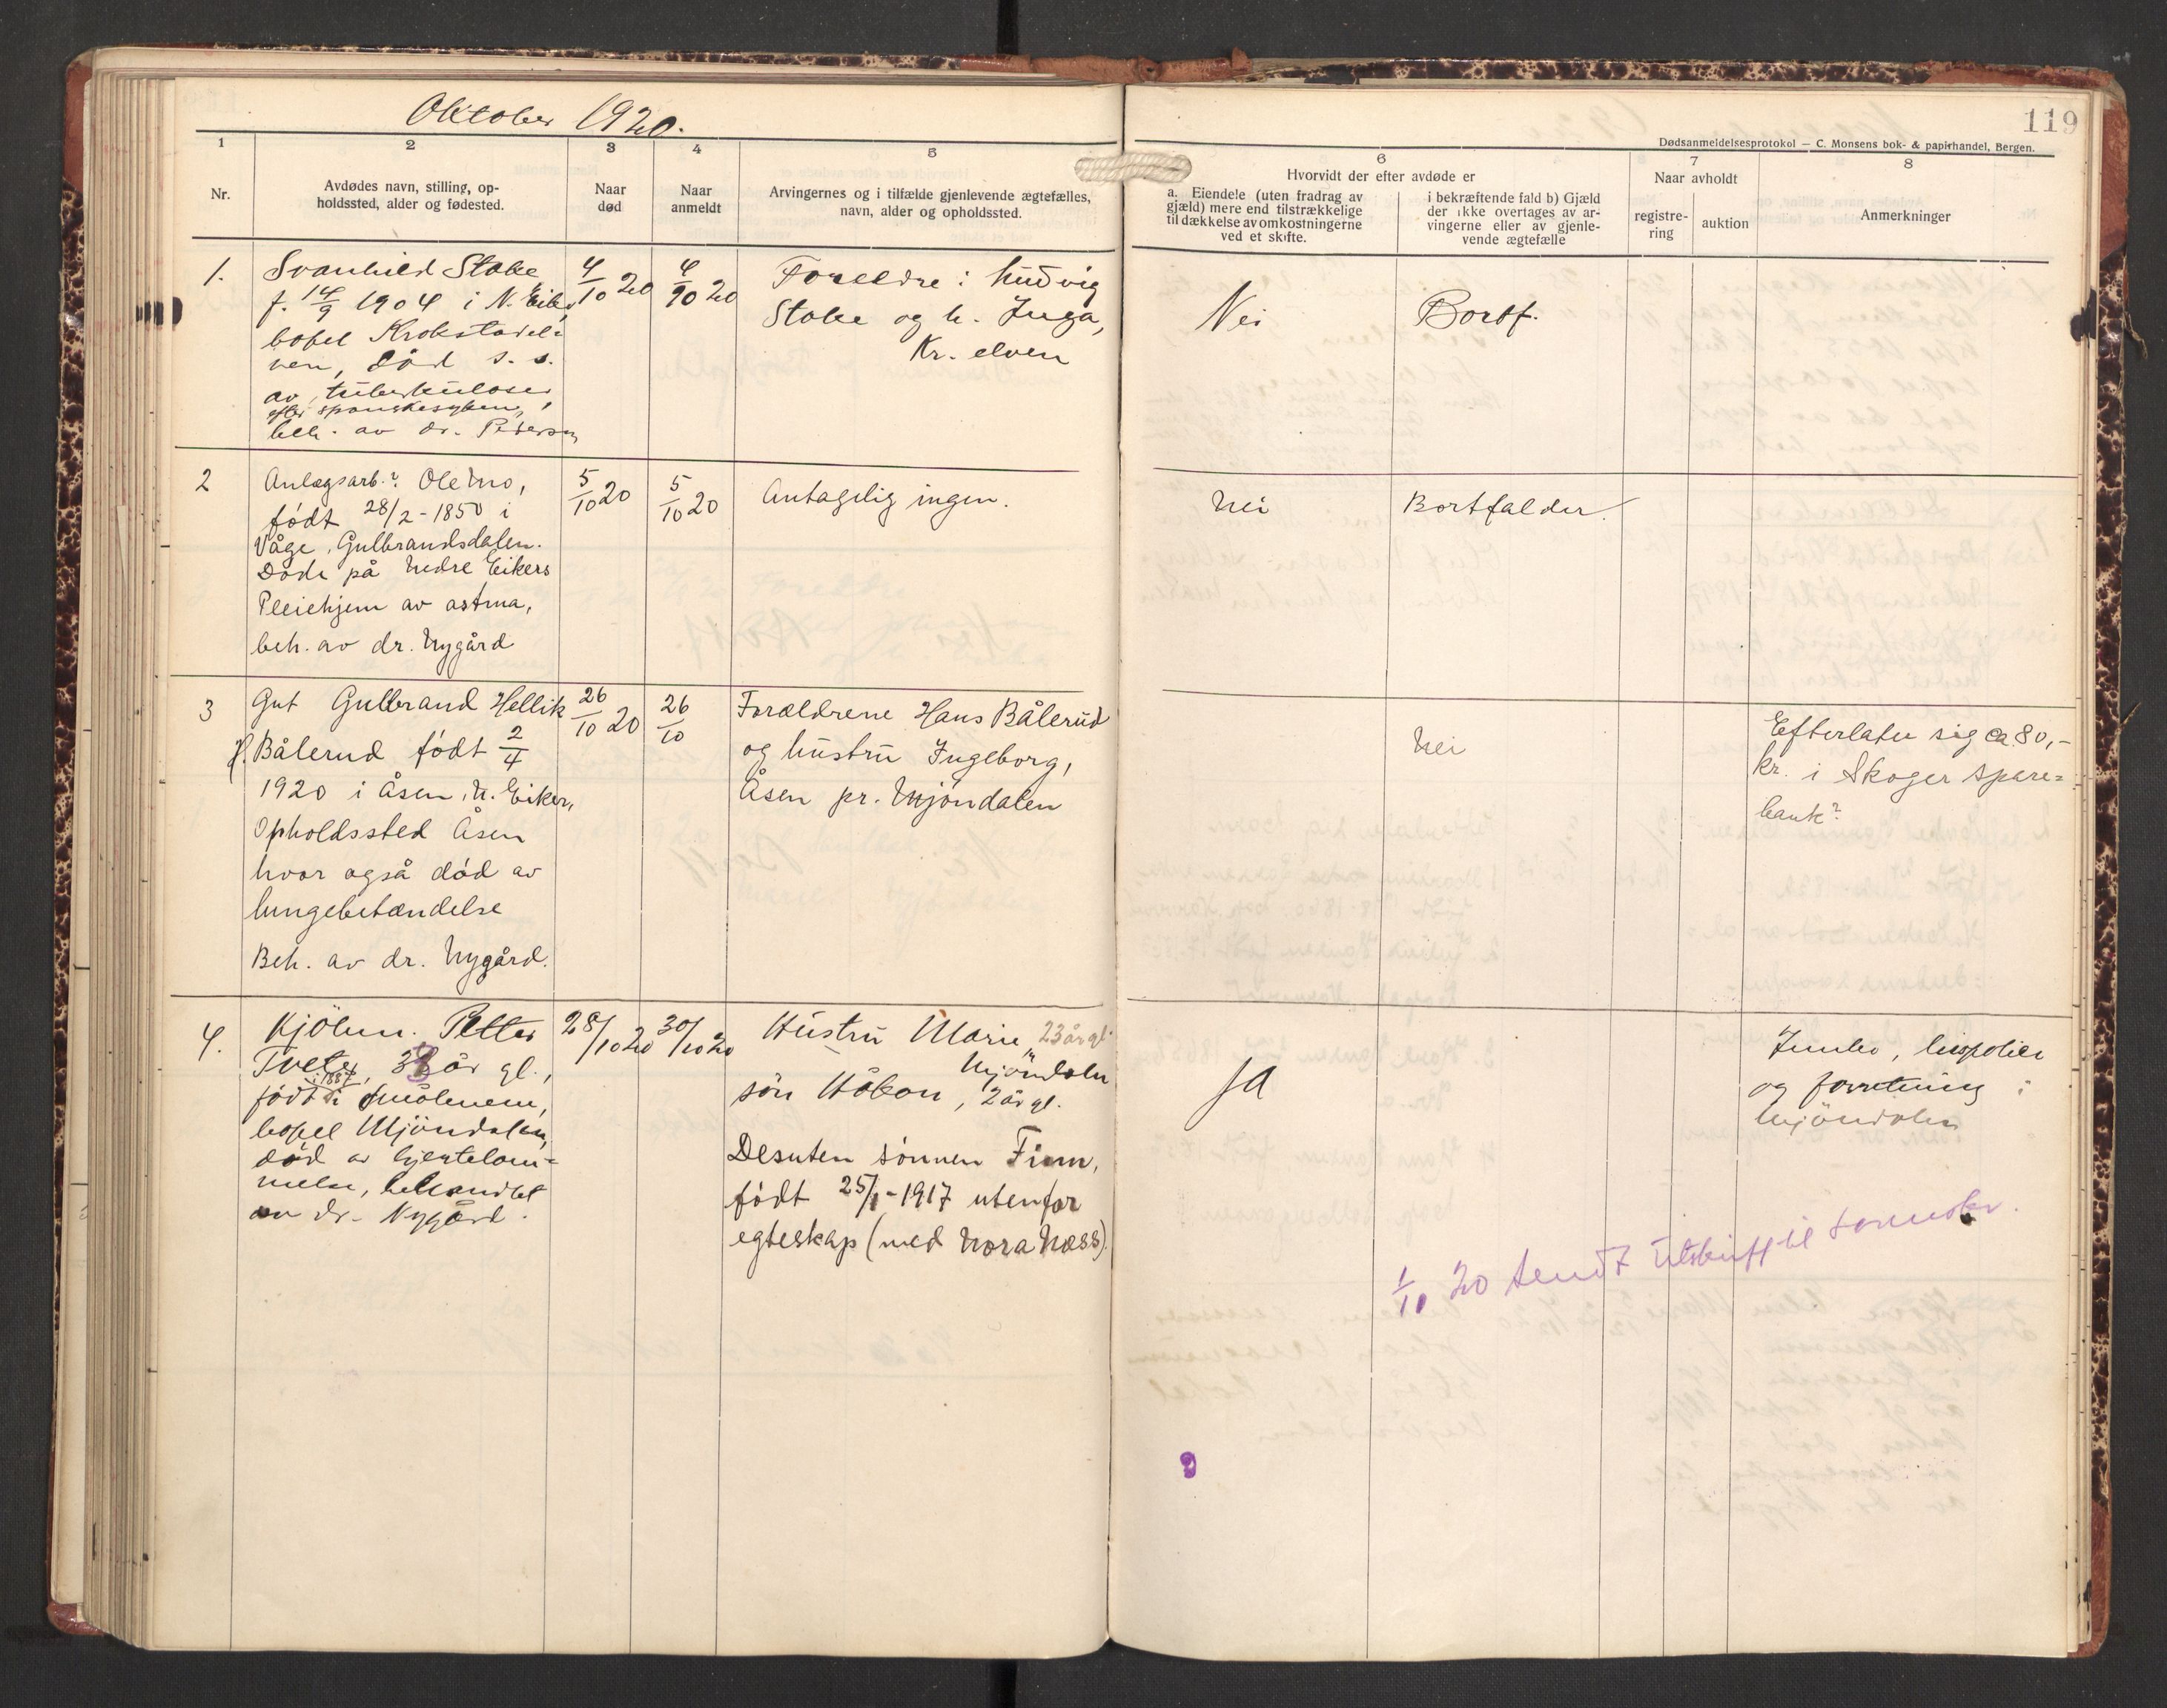 Oktober 1920.
119
Dødsanmeldelsesprotokol — C. Monsens bok- & papirhandel, Bergen.
1
2
3
4
5
6
7
8
Nr.
Avdødes navn, stilling, op-
holdssted, alder og fødested.
Naar
død
Naar
anmeldt
Arvingernes og i tilfælde gjenlevende ægtefælles,
navn, alder og opholdssted.
Hvorvidt der efter avdøde er
a. Eiendele (uten fradrag av
gjæld) mere end tilstrækkelige
til dækkelse av omkostningerne
ved et skifte.
i bekræftende fald b) Gjæld
der ikke overtages av ar-
vingerne eller av gjenle-
vende ægtefælle
Naar avholdt
registre-
ring
auktion
Anmerkninger
1.
Svanhild Stabe
f. 14/9 1904 i N. Eiker,
bopel Krokstadel-
ven, død s. s.
av tuberkulose
efter spanskesyken,
beh. av dr. Petersen
4/10 20
4/10 20
Foreldre: Ludvig
Stabe og h. Inga,
Kr. elven
Nei
Bortf.
2
Anlægsarb.? Ole Mo,
født 28/2-1850 i
Våge, Gulbrandsdalen.
Døde på Nedre Eikers
Pleiehjem av astma,
beh. av dr. Nygård
5/10 20
5/10 20
Antagelig ingen.
Nei
Bortfalder.
3
Gut Gulbrand Hellik
H. Bålerud født 2/4
1920 i Åsen, N. Eiker,
Opholdssted Åsen
hvor også død av
lungebetændelse
Beh. av dr. Nygård.
26/10 20
26/10
Forældrene Hans Bålerud
og hustru Ingeborg,
Åsen pr. Mjøndalen
Nei
Efterlater sig ca. 80,-
kr. i Skoger spare=
bank?
4.
Kjøbm. Petter
Tveter, 33 år gl.,
født i 1887 i Smålenene,
bopel Mjøndalen,
død av hjertelam=
melse, behandlet
av dr. Nygård.
28/10 20
30/10 20
Hustru Marie, 23 år gl.
Mjøndalen
søn Håkon, 2 år gl.
Desuten sønnen Finn,
født 25/1-1917 utenfor
egteskap (med Nora Næss).
Ja
Innbo, livspolice
og forretning i
Mjøndalen
1/10 20 sendt utskrift til sorenskr.